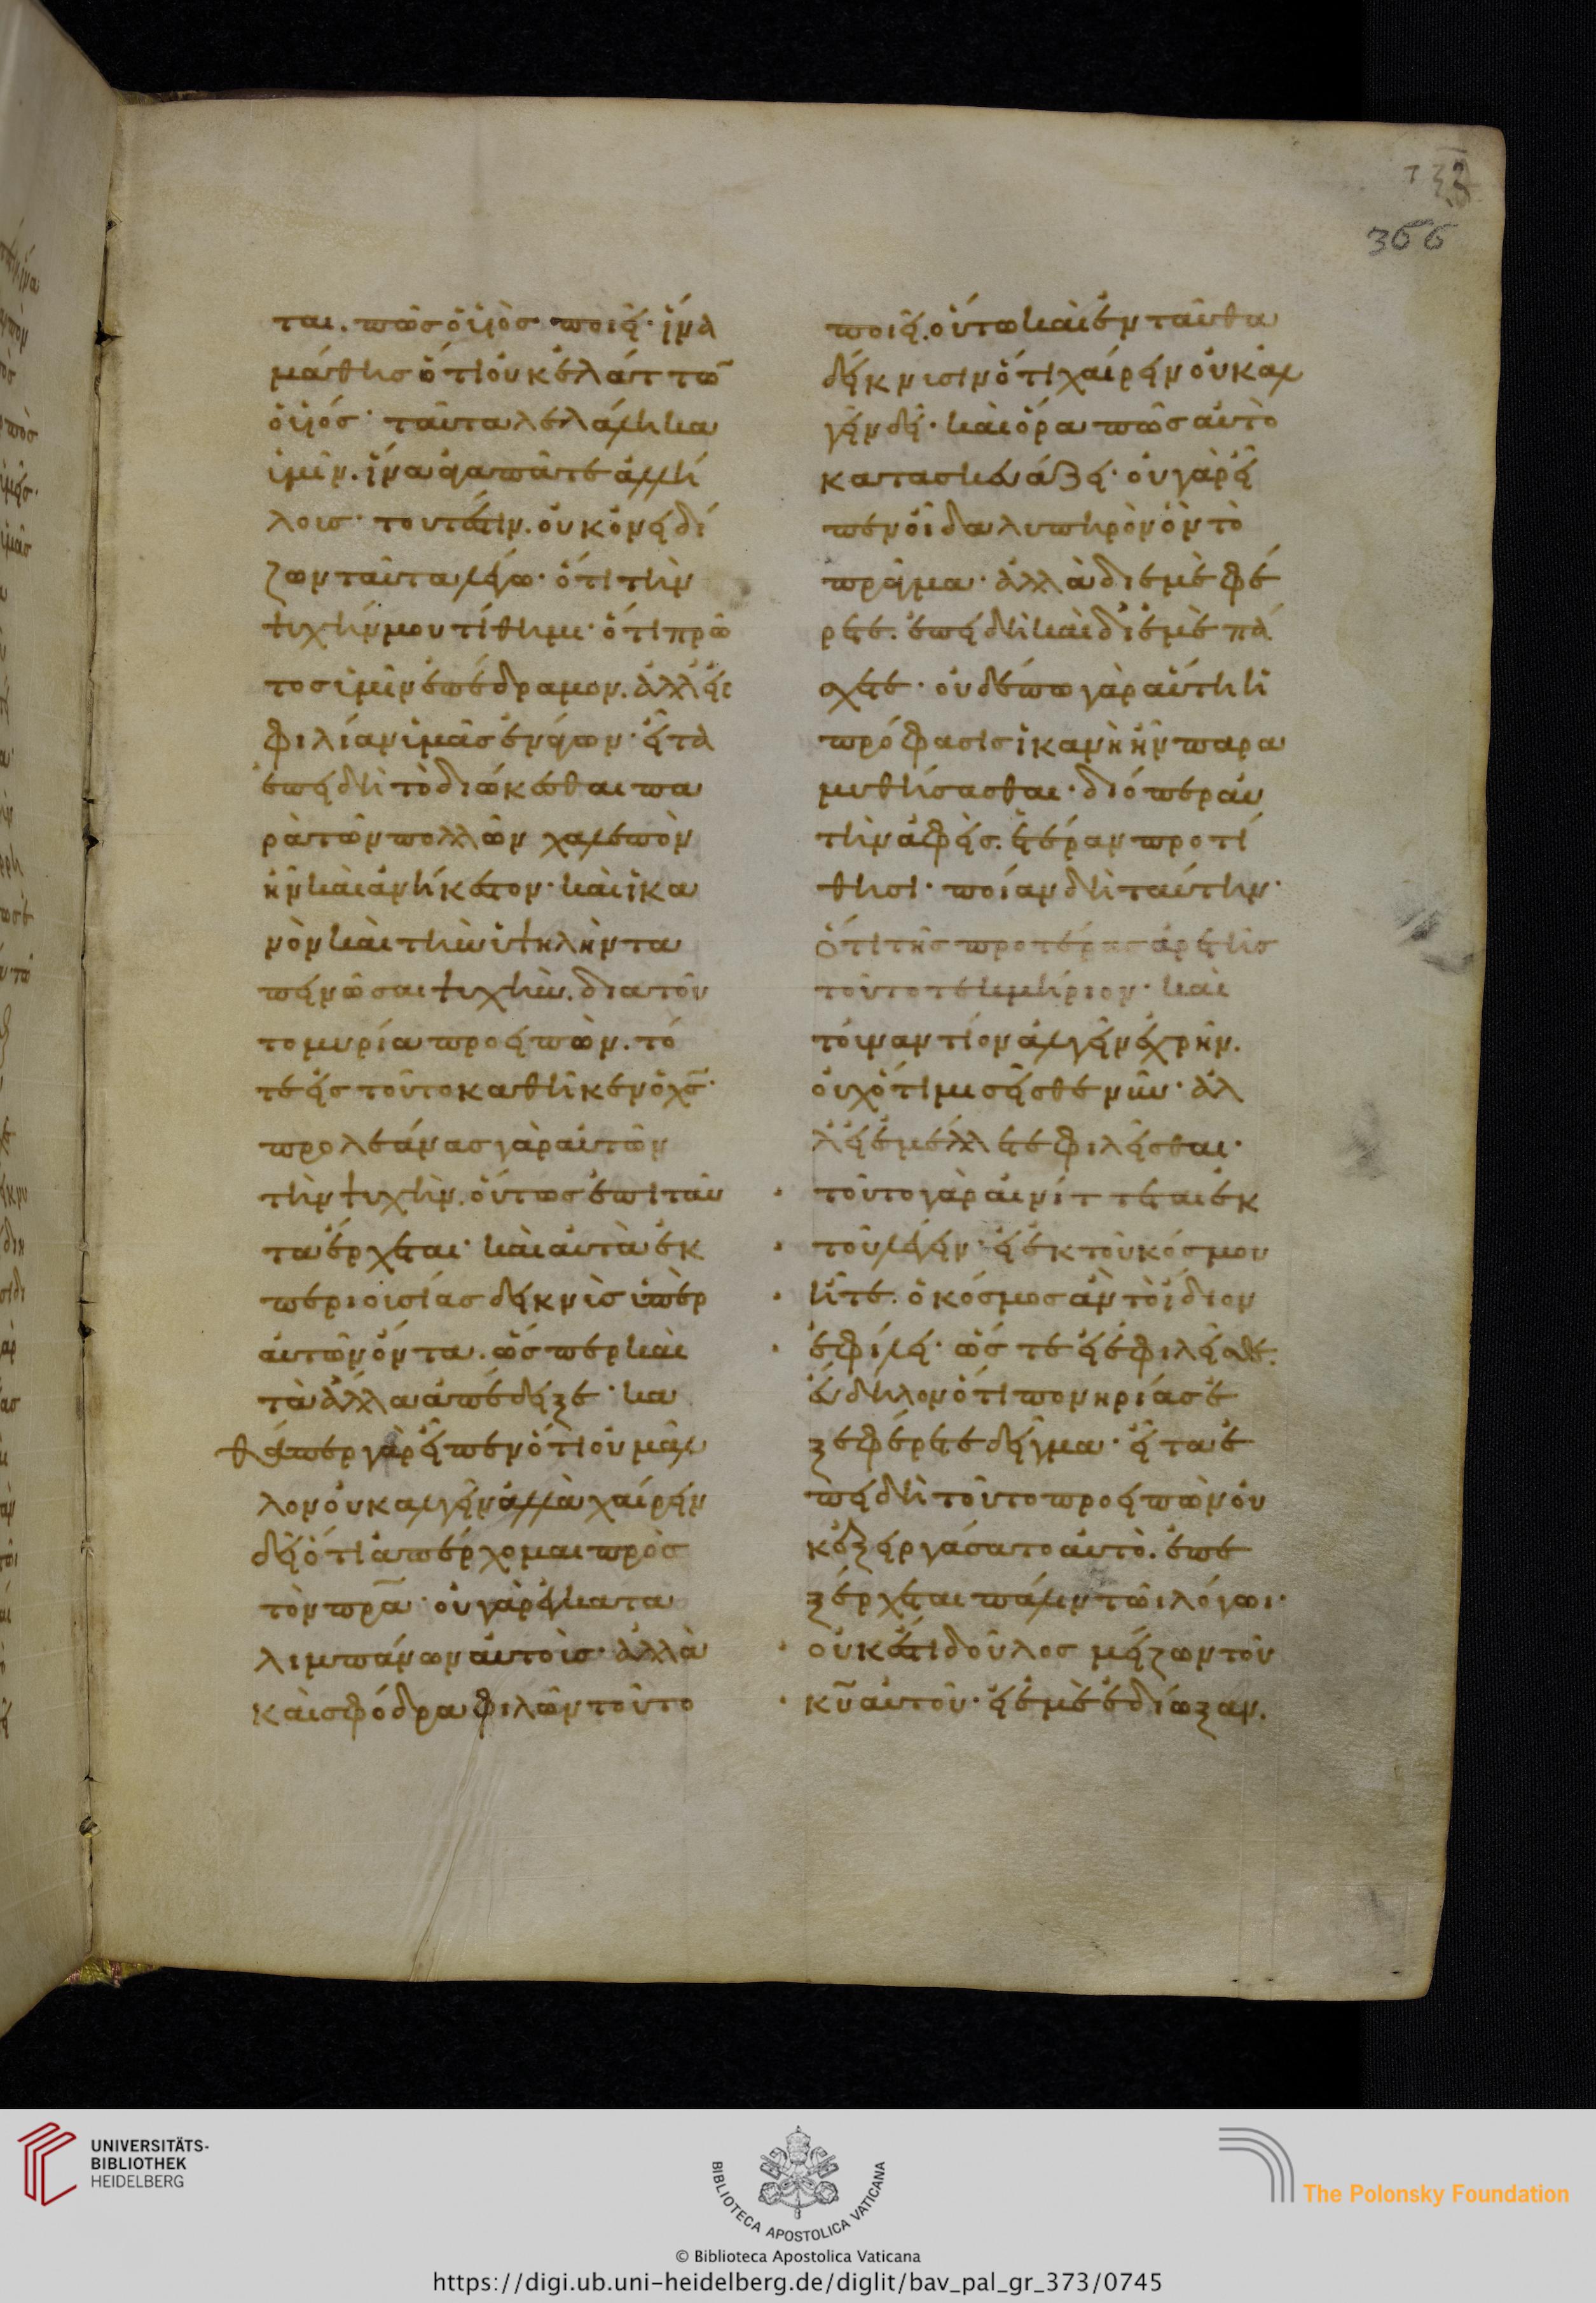 366
ται. πῶς ὁ υἱὸς ποιεῖ· ἵνα
μάθης ὅτι οὐκ ἐλάττω̅
ὁ υἱός· ταῦτα λελάληκα
ὑμῖν. ἵνα ἀγαπᾶτε ἀλλή
λοις· τουτέστιν. οὐκ ὀνειδί
ζων ταῦτα λέγω· ὅτι τὴν
ψυχήν μου τίθημι· ὅτι πρῶ
τος ὑμῖν ἐπέδραμον. ἀλλ' εἰς
φιλίαν ὑμᾶς ἐνάγων· εἶτα
ἐπειδὴ τὸ διώκεσθαι πα
ρὰ τῶν πολλῶν χαλεπὸν
ἦν καὶ ἀνήκεστον· καὶ ἱκα
νὸν καὶ τὴν ὑψηλὴν τα
πεινῶσαι ψυχήν. διατοῦ
το μυρία προειπὼν. τό
τε εἰς τοῦτο καθῆκεν ὁ χ̅ς̅·
προλεάνας γὰρ αὐτῶν
τὴν ψυχὴν. οὕτως ἐπὶ ταῦ
τα ἔρχεται· καὶ αὐτὰ ἐκ
περιουσίας δεικνὺς ὑπὲρ
αὐτῶν ὄντα. ὥσπερ καὶ
τὰ ἄλλα ἀπέδειξε· κα
θάπερ γὰρ εἶπεν ὅτι οὐ μᾶλ
λον οὐκ ἀλγεῖν ἀλλὰ χαίρειν
δεῖ ὅτι ἀπέρχομαι πρὸς
τὸν πρ̅α̅· οὐ γὰρ ἐγκατα
λιμπάνων αὐτοὺς· ἀλλὰ
καὶ σφόδρα φιλῶν τοῦτο
ποιεῖ. οὕτω καὶ ἐνταῦθα
δείκνυσιν ὅτι χαίρειν οὐκ ἀλ
γεῖν δεῖ· καὶ ὅρα πῶς αὐτὸ
κατασκευάζει· οὐ γὰρ εἶ
πεν οἶδα λυπηρὸν ὂν τὸ
πρᾶγμα· ἀλλὰ δι' ἐμὲ φέ
ρετε. ἐπειδὴ καὶ δι' ἐμὲ πά
σχετε· οὐδέπω γὰρ αὕτη ἡ
πρόφασις ἱκανὴ ἦν παρα
μυθήσασθαι· διόπερ αὐ
τὴν ἀφεὶς. ἑτέραν προτί
θησι· ποίαν δὴ ταύτην·
ὅτι τῆς προτέρας ἀρετῆς
τοῦτο τεκμήριον· καὶ
τοὐναντίον ἀλγεῖν ἐχρῆν.
οὐχ ὅτι μισεῖσθε νῦν· ἀλ
λ' εἰ ἐμέλλετε φιλεῖσθαι·
τοῦτο γὰρ αἰνίττεται ἐκ
τοῦ λέγειν· εἰ ἐκ τοῦ κόσμου
ἦτε. ὁ κόσμος ἂν τὸ ἴδιον
ἐφίλει· ὥστε εἰ ἐφιλεῖσθε.
εὔδηλον ὅτι πονηρίας ἐ
ξεφέρετε δεῖγμα· εἶτα ἐ
πειδὴ τοῦτο προειπὼν οὐ
κ ἐξειργάσατο αὐτὸ. ἐπε
ξέρχεται πάλιν τῶι λόγωι·
οὐκ ἔστι δοῦλος μείζων τοῦ
κ̅υ̅ αὐτοῦ· εἰ ἐμὲ ἐδίωξαν.
UNIVERSITÄTS-
BIBLIOTHEK
HEIDELBERG
BIBLIOTECA APOSTOLICA VATICANA
The Polonsky Foundation
© Biblioteca Apostolica Vaticana
https://digi.ub.uni-heidelberg.de/diglit/bav_pal_gr_373/0745